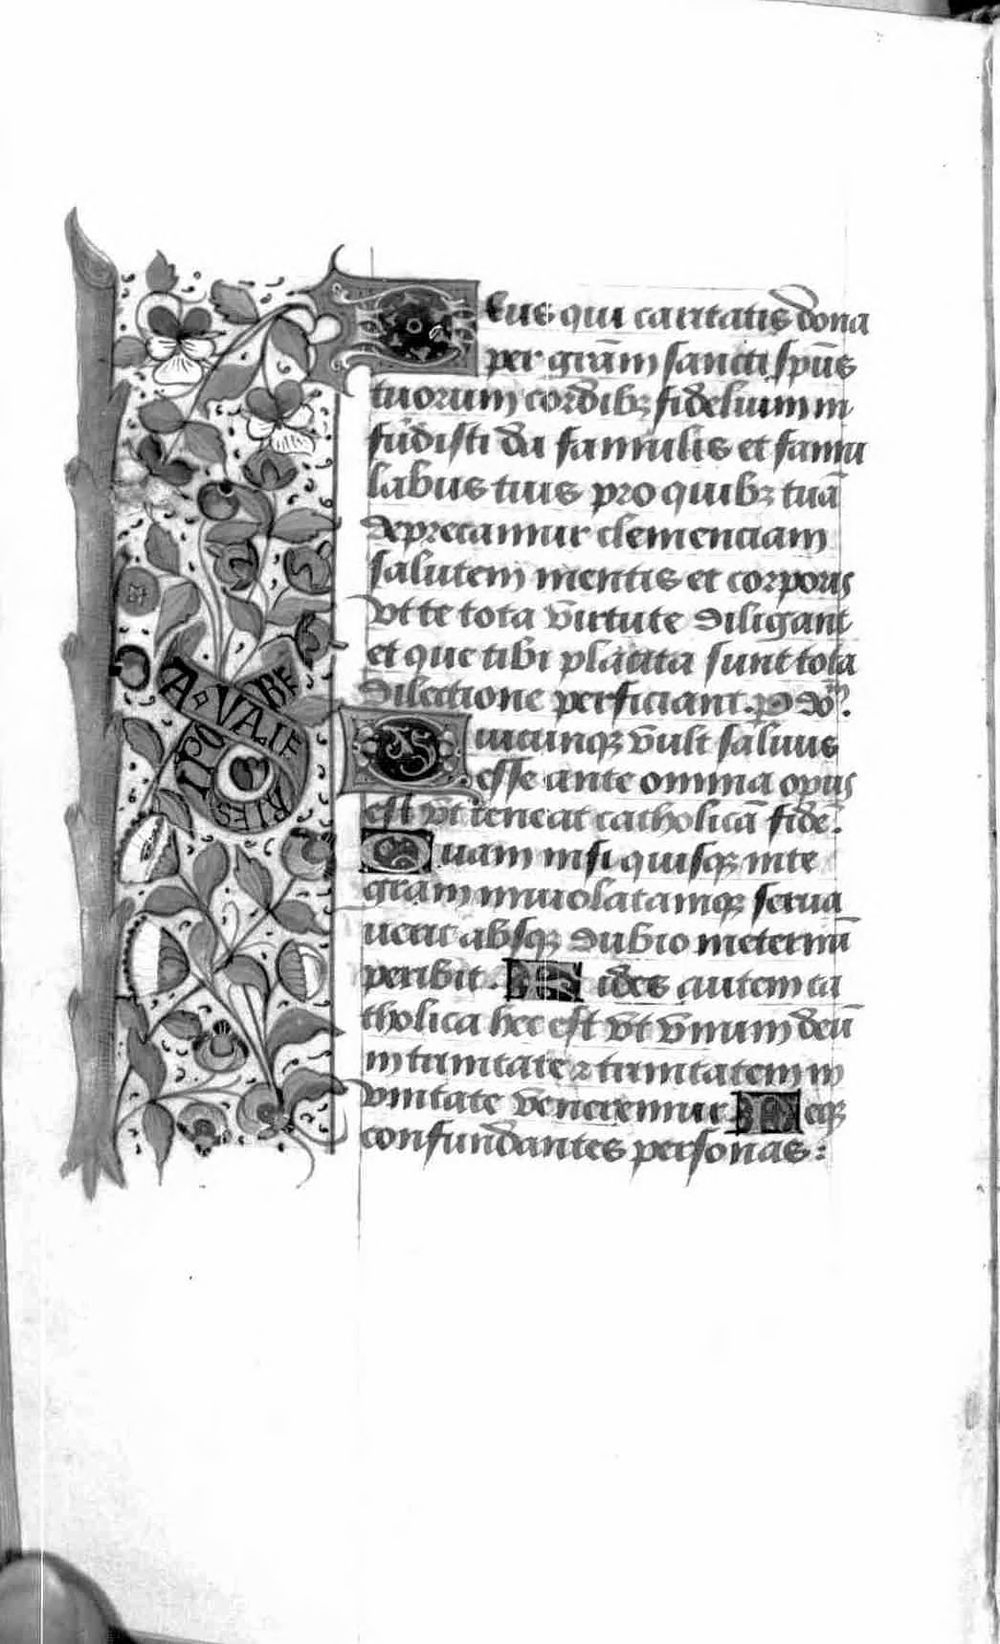 Deus qui caritatis dona
per grām sancti spūs
tuorum cordibꝫ fidelium in
fudisti da famulis et famu
labus tuis pro quibꝫ tuā
deprecamur clemenciam
salutem mentis et corporis
vt te tota virtute diligant
et que tibi placita sunt tota
dilectione perficiant. p dom̄.
Quicunqꝫ vult saluus
esse ante omnia opus
est vt teneat catholicā fidē.
Quam nisi quisqꝫ inte
gram inuiolatamqꝫ serua
uerit absqꝫ dubio meternū
peribit. Fides autem ca
tholica hec est vt vnum deū
in trinitate ⁊ trinitatem in
vnitate veneremur. Neqꝫ
confundantes personas: